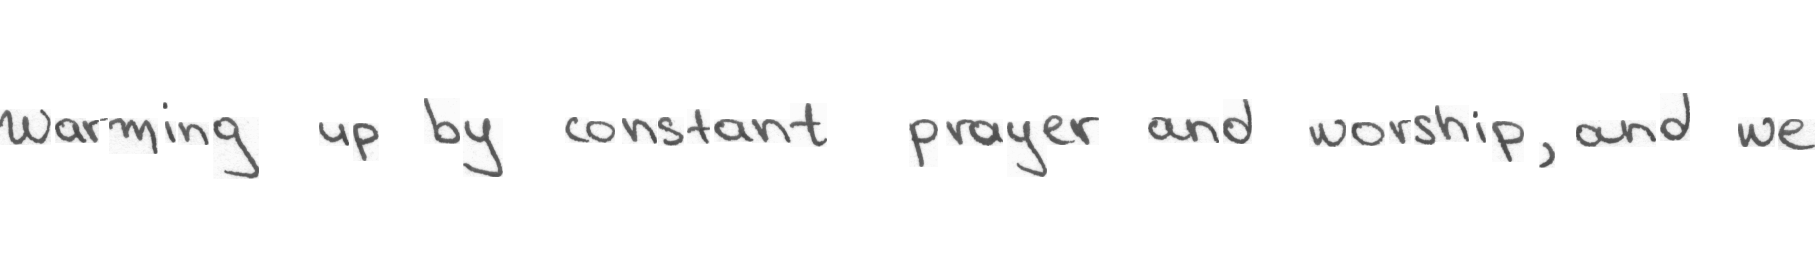 Warming up by constant prayer and worship, and we